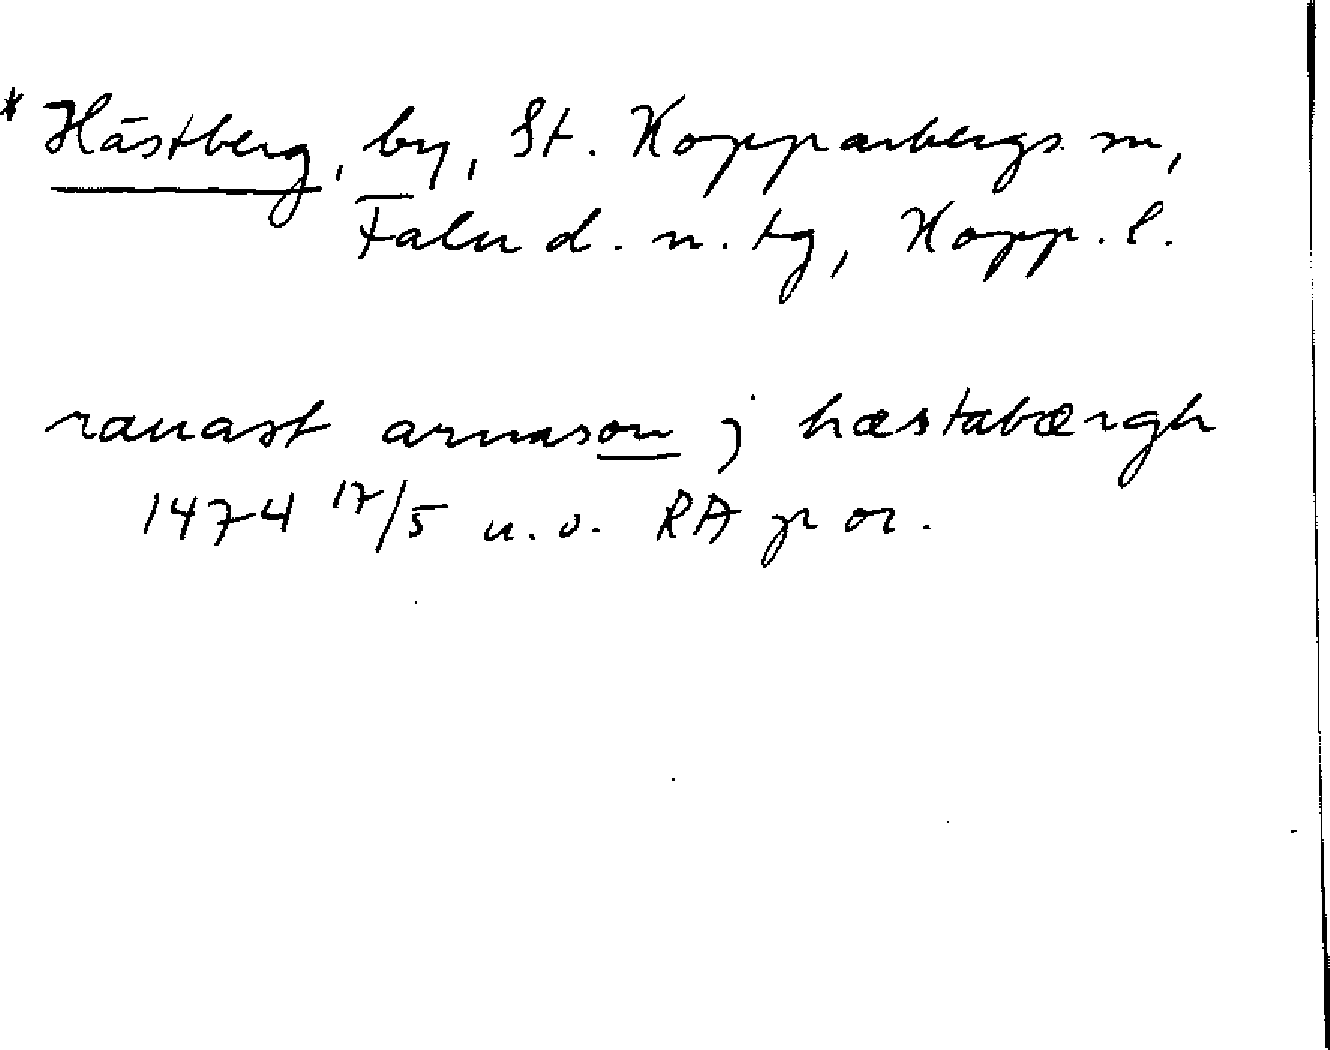 * Hästberg, by, St. Kopparbergs sn,
Falu d. n. tg, Kopp. l.
rauast arnason j hæstabærgh
1474 17/5 u.o. RA p or.